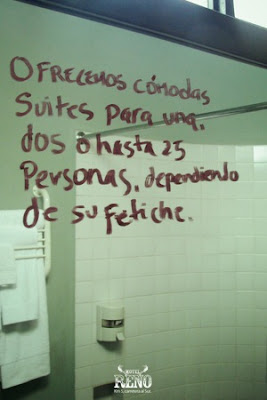 Ofrecemos cómodas
Suites para una,
dos o hasta 25
Personas, dependiendo
de su fetiche.
HOTEL
RENO